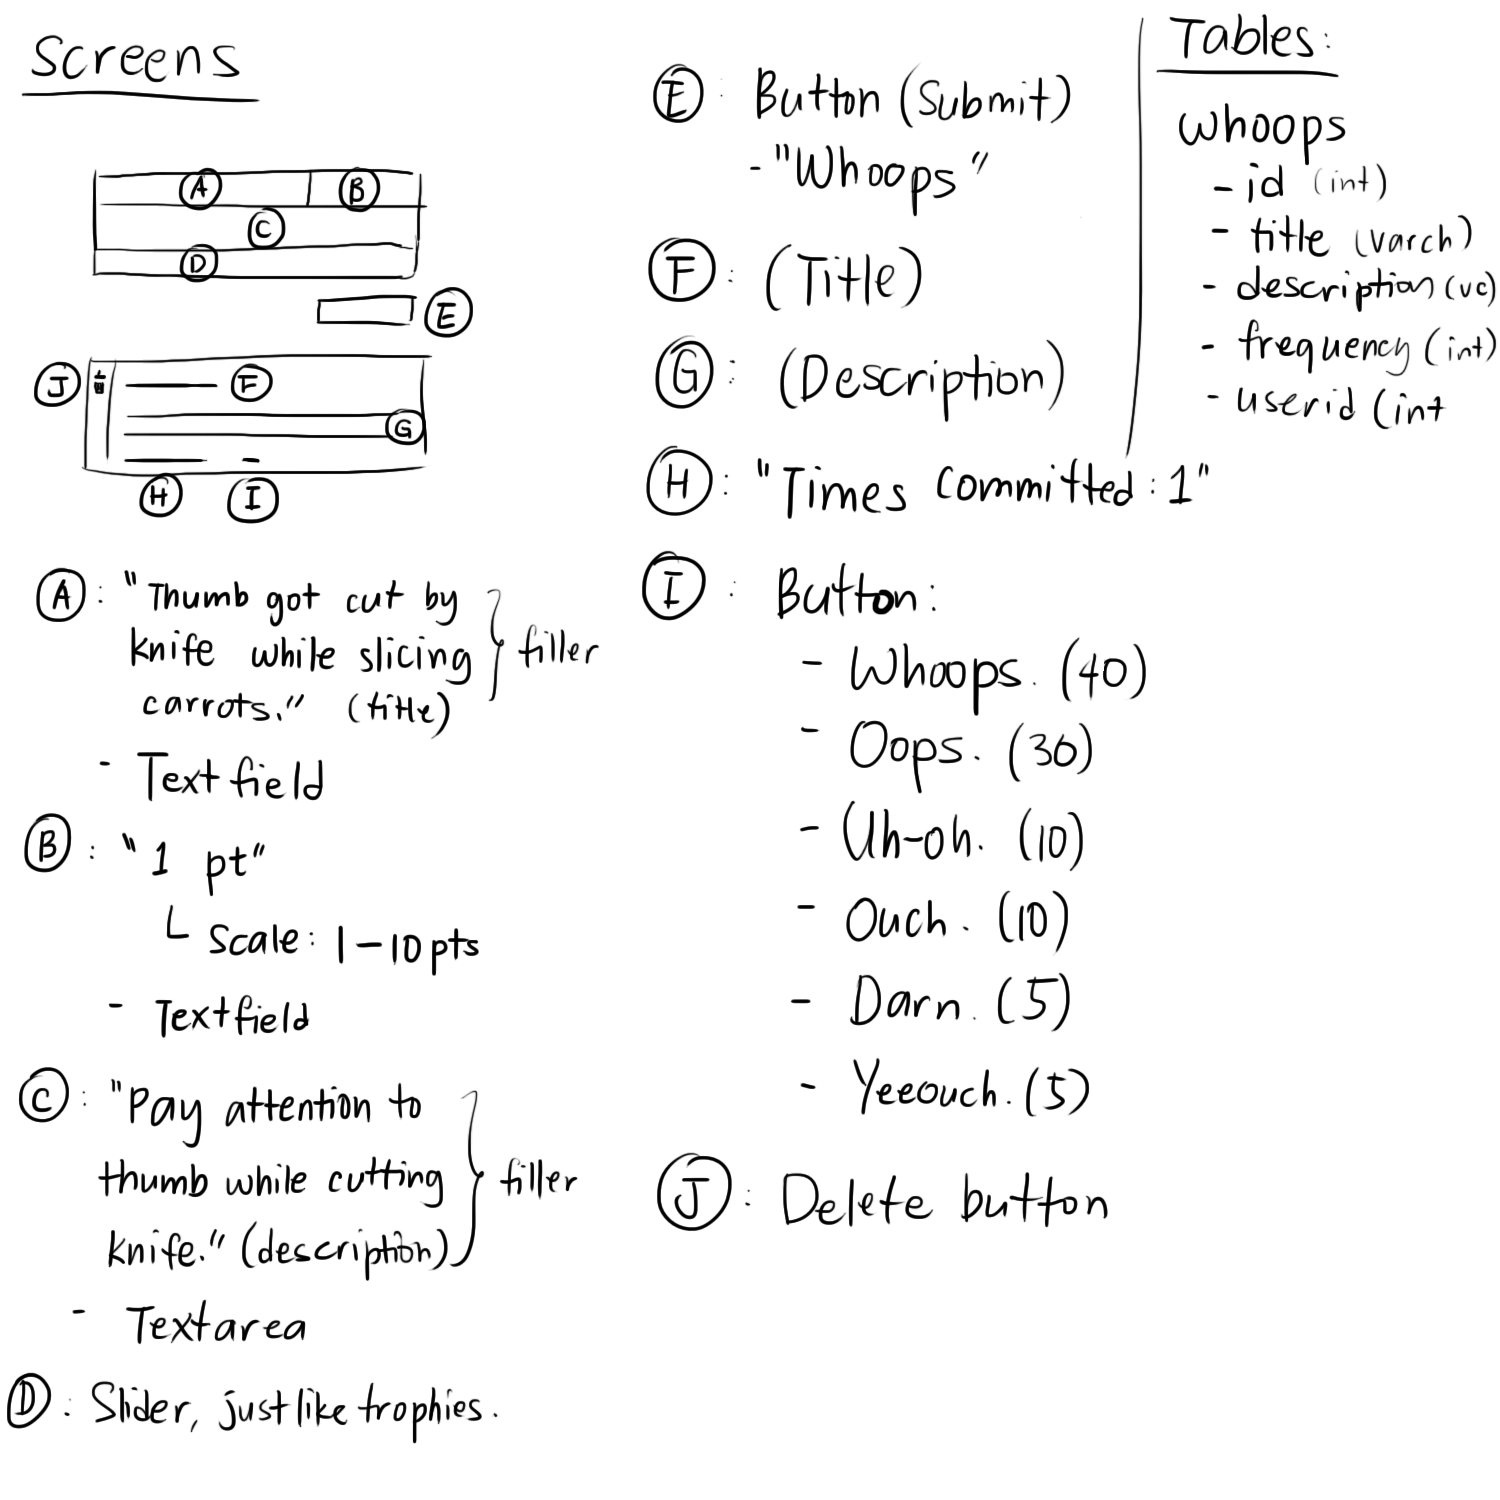 Screens
A
B
C
D
E
J
F
G
H
I
A: "Thumb got cut by
knife while slicing
carrots." (title)
filler
- Textfield
B: "1 pt"
Scale: 1-10 pts
- Textfield
C: "Pay attention to
thumb while cutting
knife." (description)
filler
- Textarea
D: Slider, just like trophies.
E: Button (Submit)
- "Whoops"
F: (Title)
G: (Description)
H: "Times committed: 1"
I: Button:
- Whoops. (40)
- Oops. (30)
- Uh-oh. (10)
- Ouch. (10)
- Darn. (5)
- Yeeouch. (5)
J: Delete button
Tables:
whoops
- id (int)
- title (varch)
- description (vc)
- frequency (int)
- userid (int